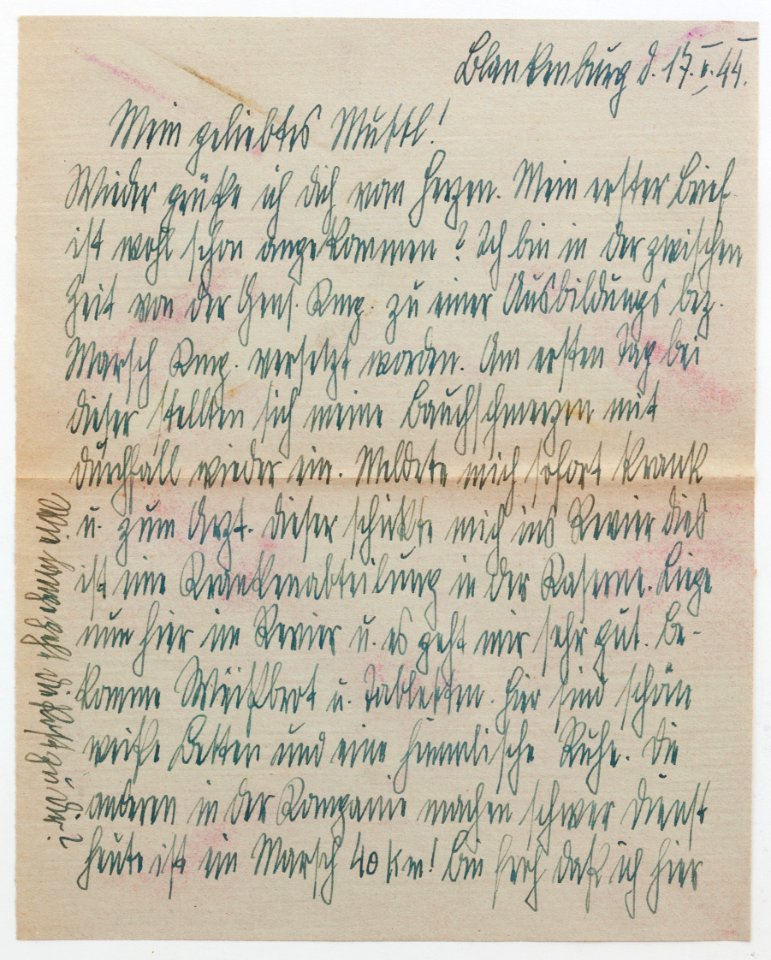 Blankenburg d. 17.I.44.
Mein geliebtes Muttl!
Wieder grüße ich Dich vom Herzen. Mein erster Brief
ist wohl schon angekommen? Ich bin in der zwischen
Zeit von der Gens. Kmp. zu einer Ausbildungs bez.
Marsch Kmp. versetzt worden. Am ersten Tag bei
dieser stellten sich meine Bauchschmerzen mit
Durchfall wieder ein. Meldete mich sofort krank
u. zum Arzt. Dieser schickte mich ins Revier dies
ist eine Krankenabteilung in der Kaserne. Liege
nun hier im Revier u. es geht mir sehr gut. Be-
komme Weißbrot u. Tabletten. Hier sind schön
weiße Betten und eine himmlische Ruhe. Die
anderen in der Kompanie machen schwer Dienst
heute ist ein Marsch 40 km! Bin froh daß ich hier